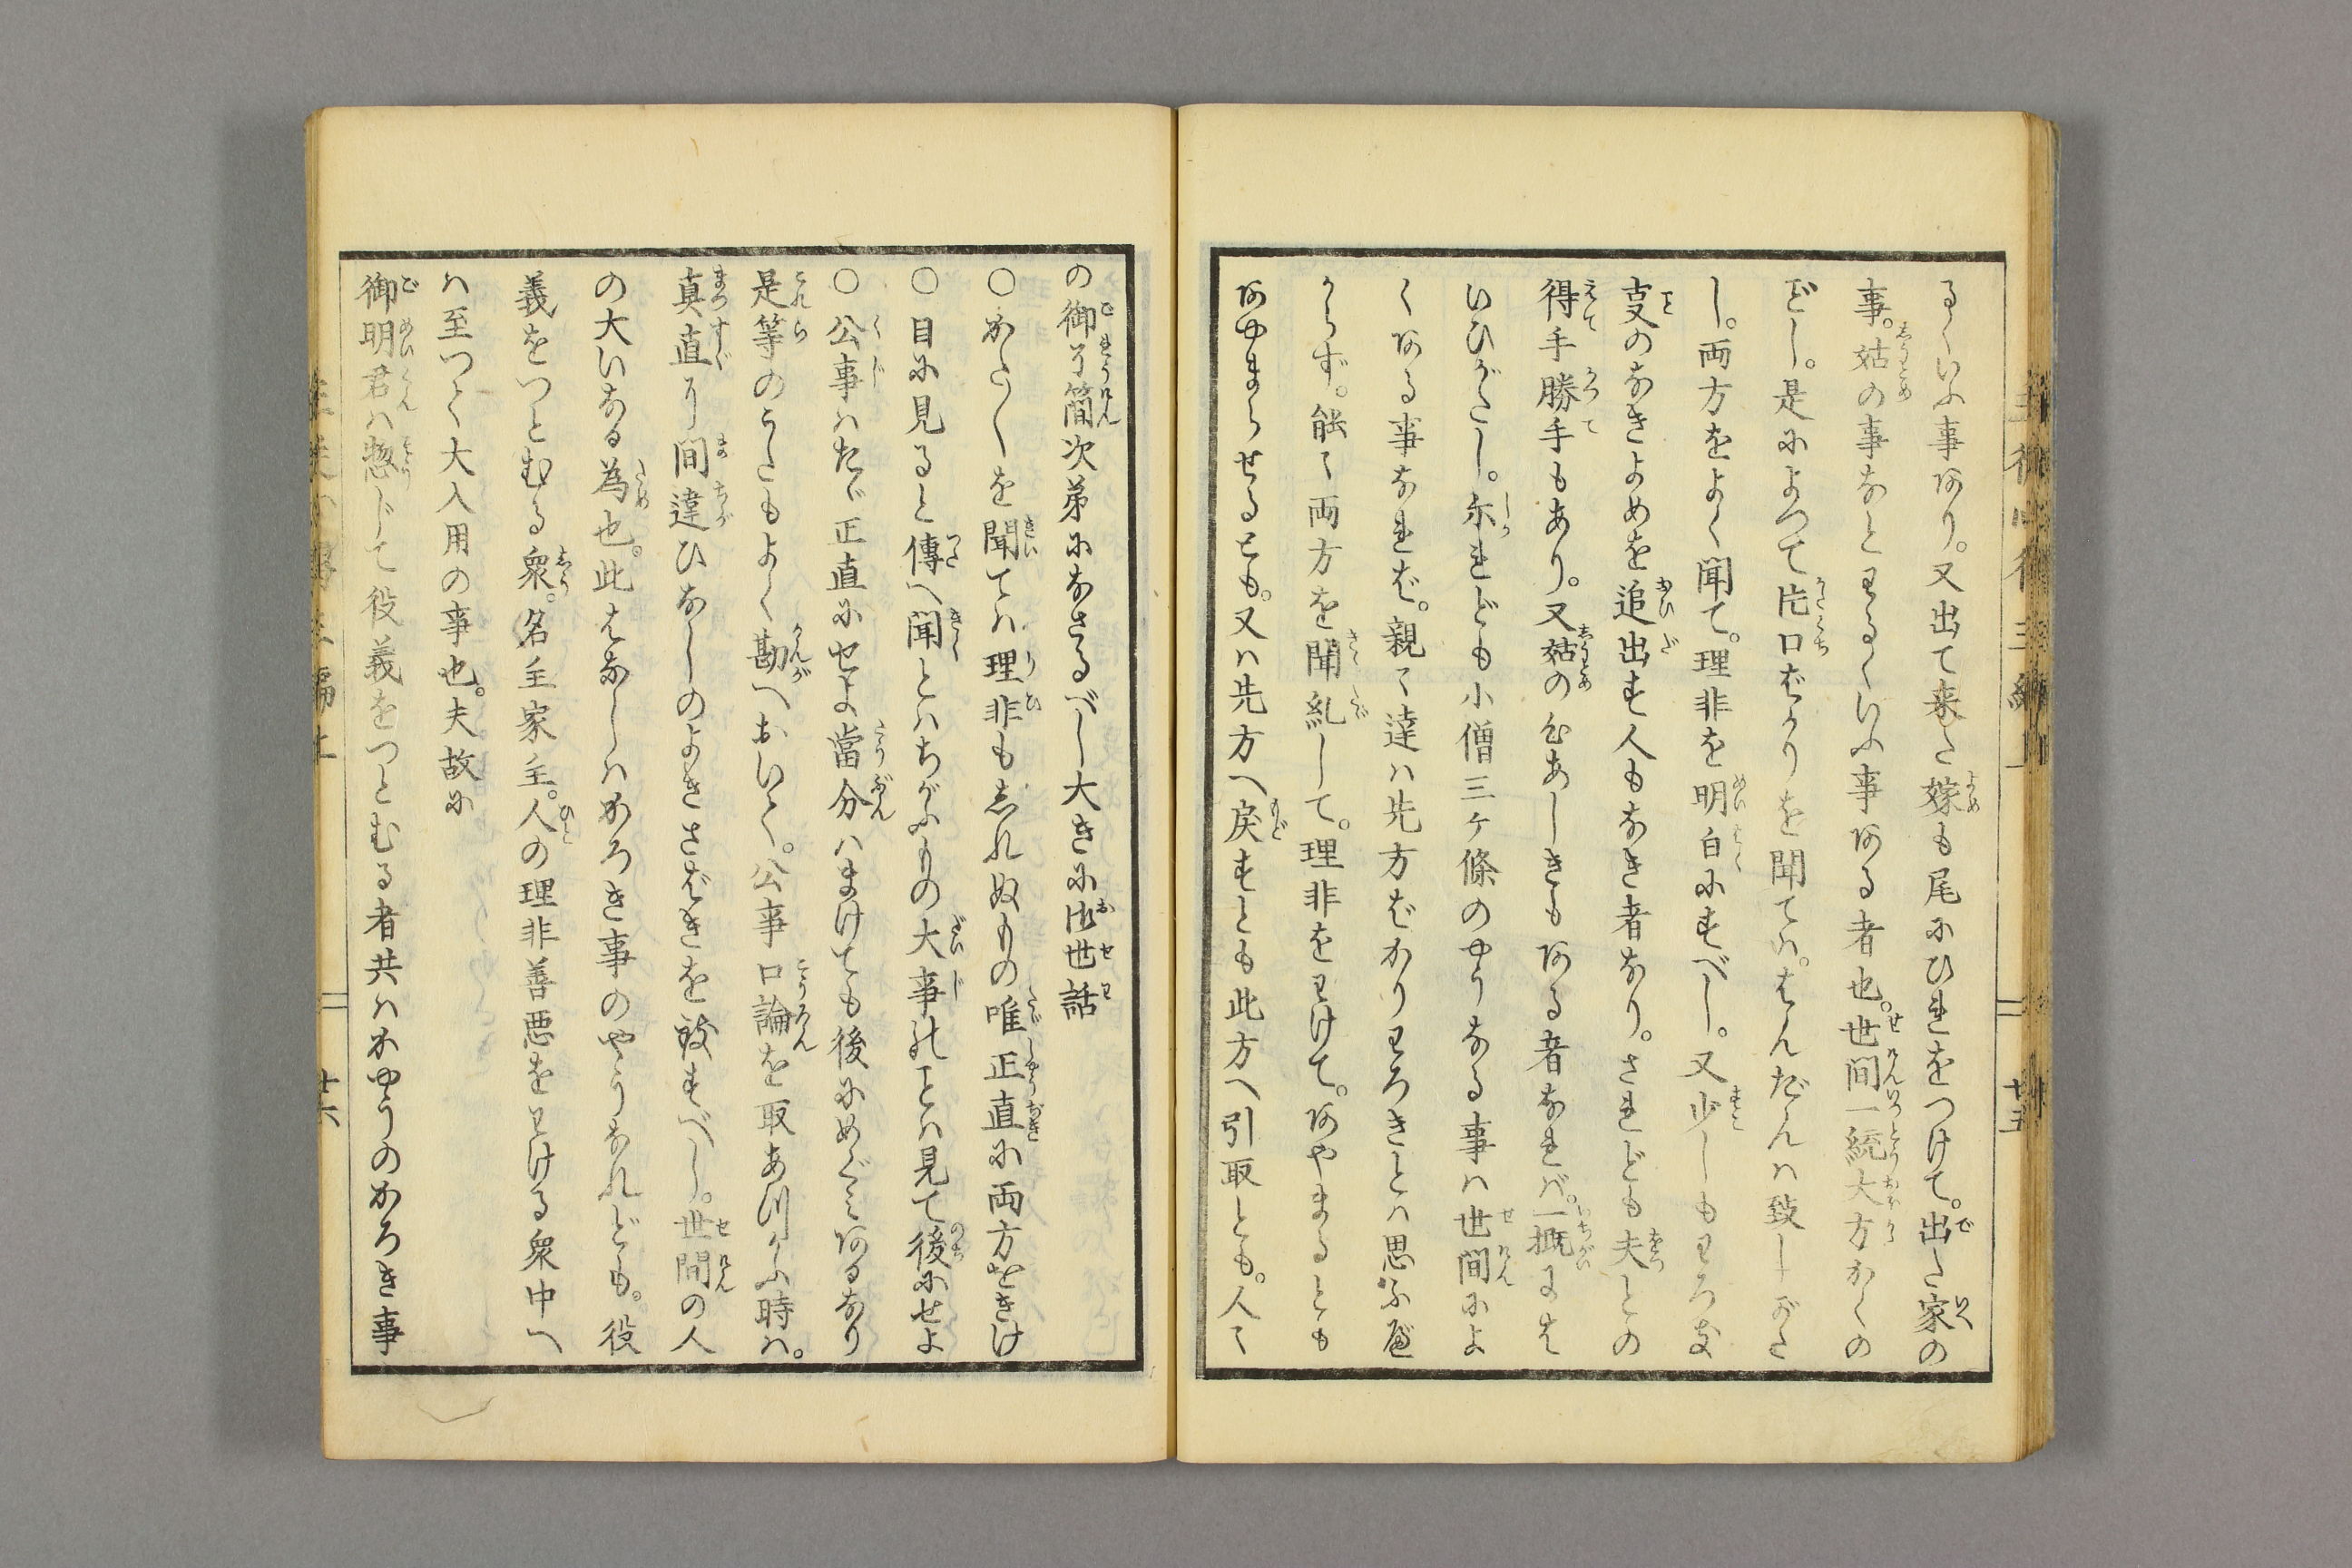 るくいふ事あり。又出て来た嫁も尾にひれをつけて。出た家の
事。姑の事などわるくいふ事ある者也。世間一統大方かくの
ごとし。是によつて片口ばかりを聞ては。はんだんは致しがた
し。両方をよく聞て。理非を明白にすべし。又少しもわろき
事のなきよめを追出す人もなき者なり。されども夫との
得手勝手もあり。又姑の心あしきもある者なれば。一概には
いひがたし。尓れども小僧三ヶ條のやうなる事は世間によ
くある事なれば。親々達は先方ばかりわろきとは思ふべ
からず。能々両方を聞糺して。理非をわけて。あやまるとも
あやまらせるとも。又は先方へ戻すとも此方へ引取とも。人々
の御了簡次第になさるべし大きに御世話
○かたくを聞ては理非もしれぬもの唯正直に両方をきけ
○目に見ると傳へ聞とはちがふもの大事のことは見て後にせよ
○公事はたゞ正直にせよ當分はまけても後にめぐみあるなり
是等のうたもよく勘へおいて。公事口論を取あつかふ時は。
真直に間違ひなしのよきさばきを致すべし。世間の人
の大いなる為也。此はなしはかろき事のやうなれども。役
義をつとむる衆。名主家主。人の理非善悪をわける衆中へ
は至つて大入用の事也。夫故に
御明君は惣じて役義をつとむる者共はかやうのかろき事
廿五
廿六